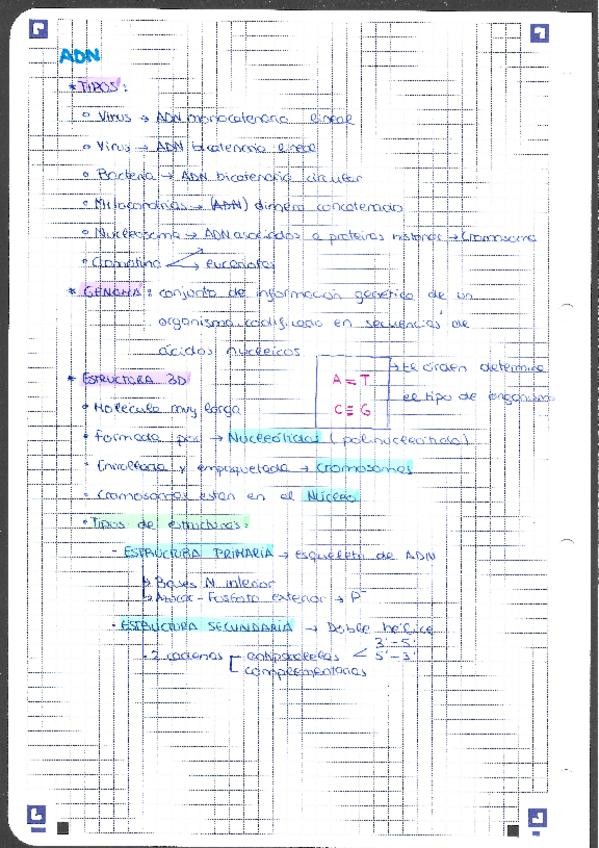 ADN
* TIPOS:
◦ Virus → ADN monocatenario lineal
◦ Virus → ADN bicatenario lineal
◦ Bacteria → ADN bicatenario circular
◦ Mitocondrias → (ADN) dímero concatenado
◦ Nucleosoma → ADN asociados a proteínas histonas → Cromosoma
◦ Cromatina → eucariotas
* GENOMA: conjunto de información genética de un
organismo codificado en secuencias de
ácidos nucleicos
→ El orden determina
el tipo de organismo
A = T
C ≡ G
* ESTRUCTURA 3D
• Molécula muy larga
• Formada por → Nucleótidos (polinucleótido)
• Enrollada y empaquetada → cromosomas
• Cromosomas están en el Núcleo
• Tipos de estructuras:
- ESTRUCTURA PRIMARIA → Esqueleto de ADN
↳ Bases N interior
↳ Azúcar - Fosfato exterior → P⁻
- ESTRUCTURA SECUNDARIA → Doble hélice
• 2 cadenas - antiparalelas < 3'-5' 5'-3'
complementarias